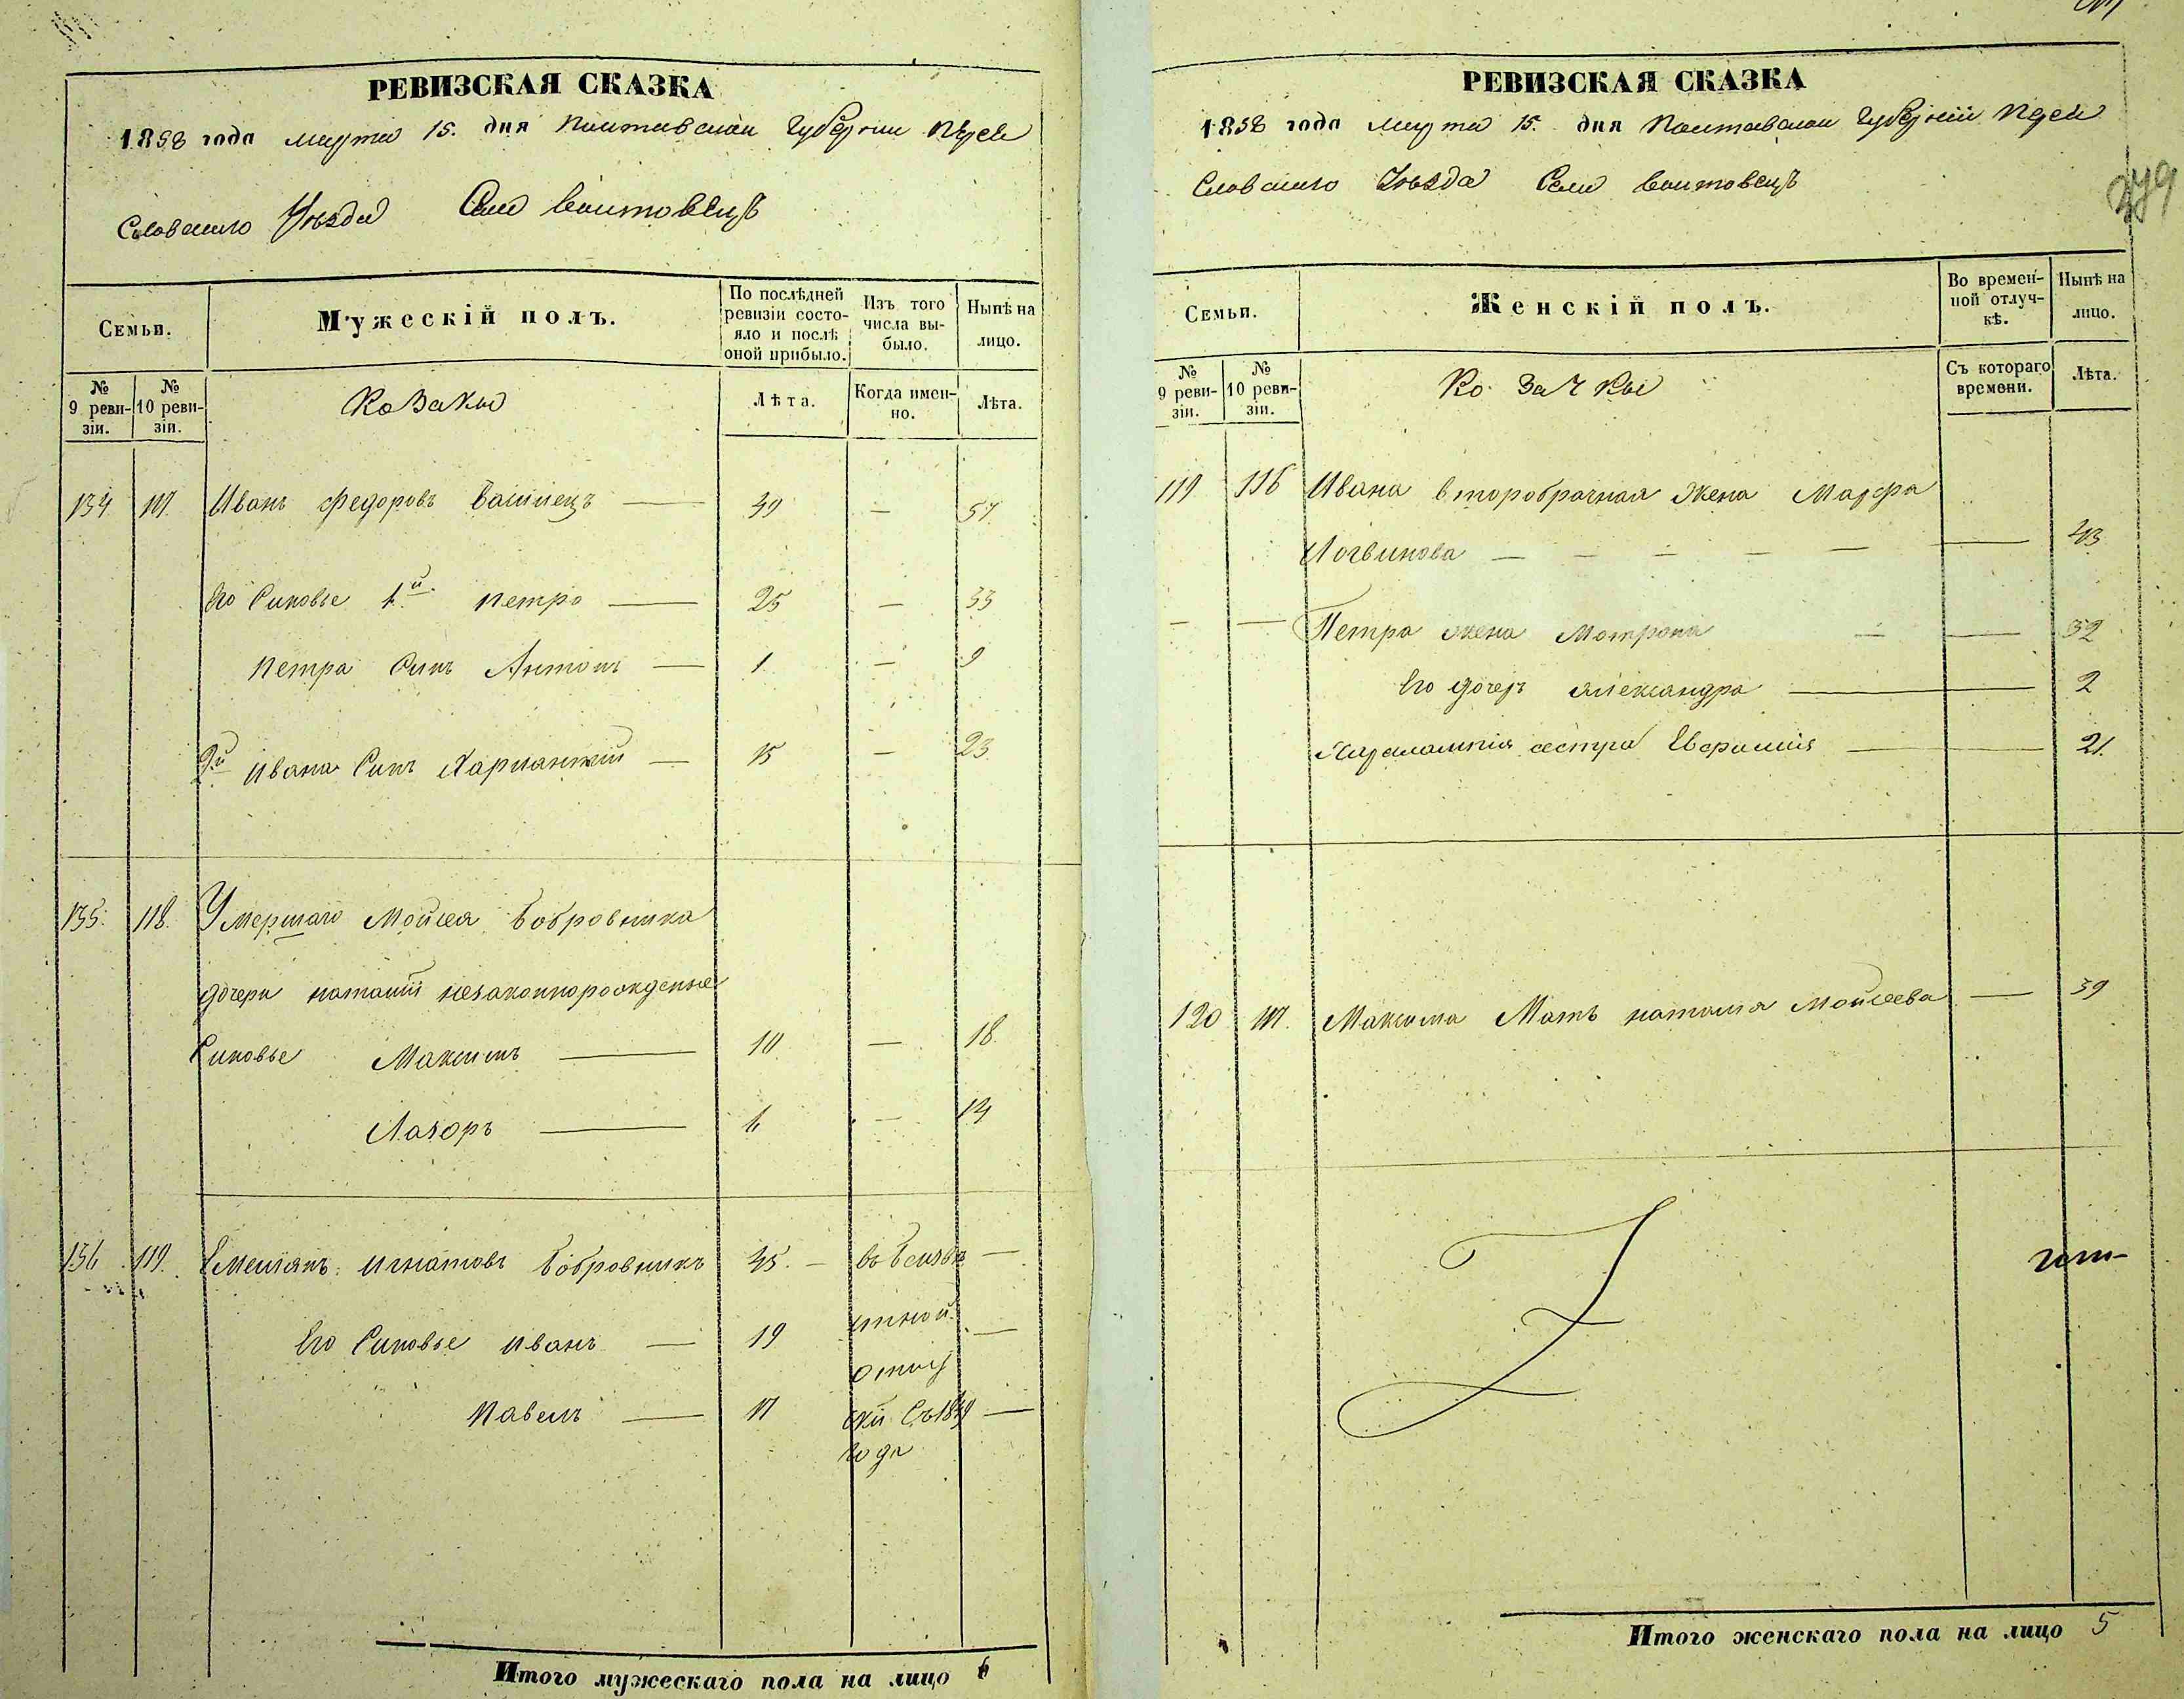 РЕВИЗСКАЯ СКАЗКА
1858 года марта 15. дня Полтавской Губернии Перея
Словского Уезда Села Воитовецъ
Семьи.
Мужескій полъ.
По послѣдней ревизіи состо-
яло и послѣ оной прибыло.
Изъ того числа вы-
было.
Нынѣ на лицо.
№ 9 реви-
зіи.
№ 10 реви-
зіи.
Козаки
Лѣта.
Когда имен-
но.
Лѣта.
134 117 Иванъ Федоровъ 39 — 57
Его Синовье 1й Петро — 25 — 33
Петра Синъ Антонъ — 1 — 9
2й Ивана Синъ — 15 — 23.
135. 118. Умершаго Мойсея Бобровника
дочери Наталіи незаконнорожденые
Синовье Максимъ — 10 — 18.
Лазоръ — 6 — 14
136 119. Емеліянъ Игнатовъ Бобровникъ 45. — въ безъвѣ —
Его Синовье Иванъ — 19 стной —
отлу
Павелъ — 11 чкѣ Съ 1849 —
года
Итого мужескаго пола на лицо 6
РЕВИЗСКАЯ СКАЗКА
1858 года марта 15. дня Полтавской Губерніи Перея
Словского Уезда Села Воитовецъ
Семьи.
Женскій полъ.
Во времен-
ной отлуч-
кѣ.
Нынѣ на лицо.
№ 9 реви-
зіи.
№ 10 реви-
зіи.
Козачки
Съ котораго времени.
Лѣта.
119 116 Ивана второбрачная Жена Марфа
Логвинова — — — — — — 43
— — Петра жена Мотрона — — 32
Его дочеръ Александра — 2
Харалампія сестра Евфимія — 21.
120 117. Максима Матъ Наталія Мойсеева — 39
Итого женскаго пола на лицо 5